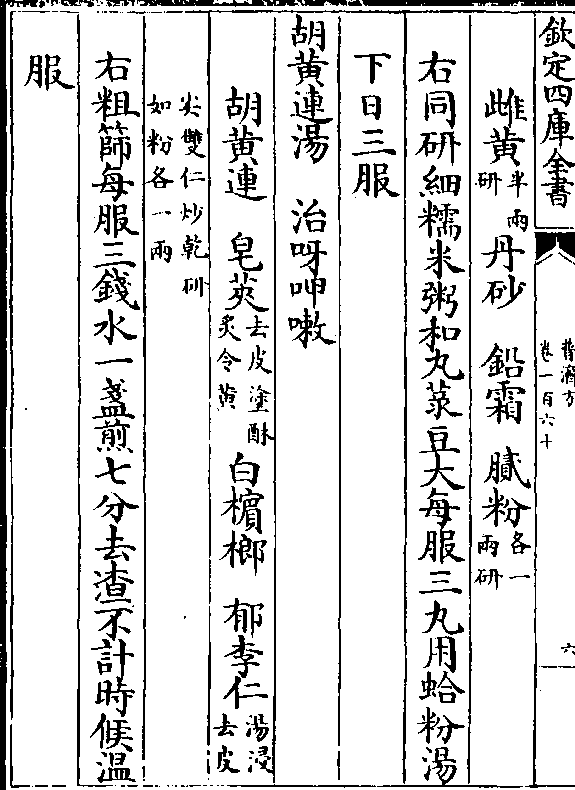 欽定四庫全書
普濟方
卷一百六十
六
雌黃半兩研 丹砂 鉛霜 膩粉各一兩研
右同研細糯米粥和丸菉豆大每服三丸用蛤粉湯
下日三服
胡黃連湯 治呀呷嗽
胡黃連 皂莢去皮塗酥炙令黃 白檳榔 郁李仁湯浸去皮
尖雙仁炒乾研如粉各一兩
右粗篩每服三錢水一盞煎七分去渣不計時候溫
服